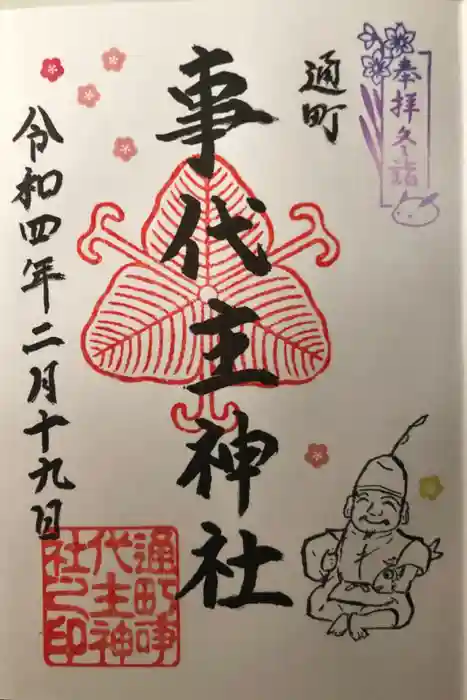 奉拝冬詣
通町
事代主神社
令和四年二月十九日
通町事
代主神
社之印